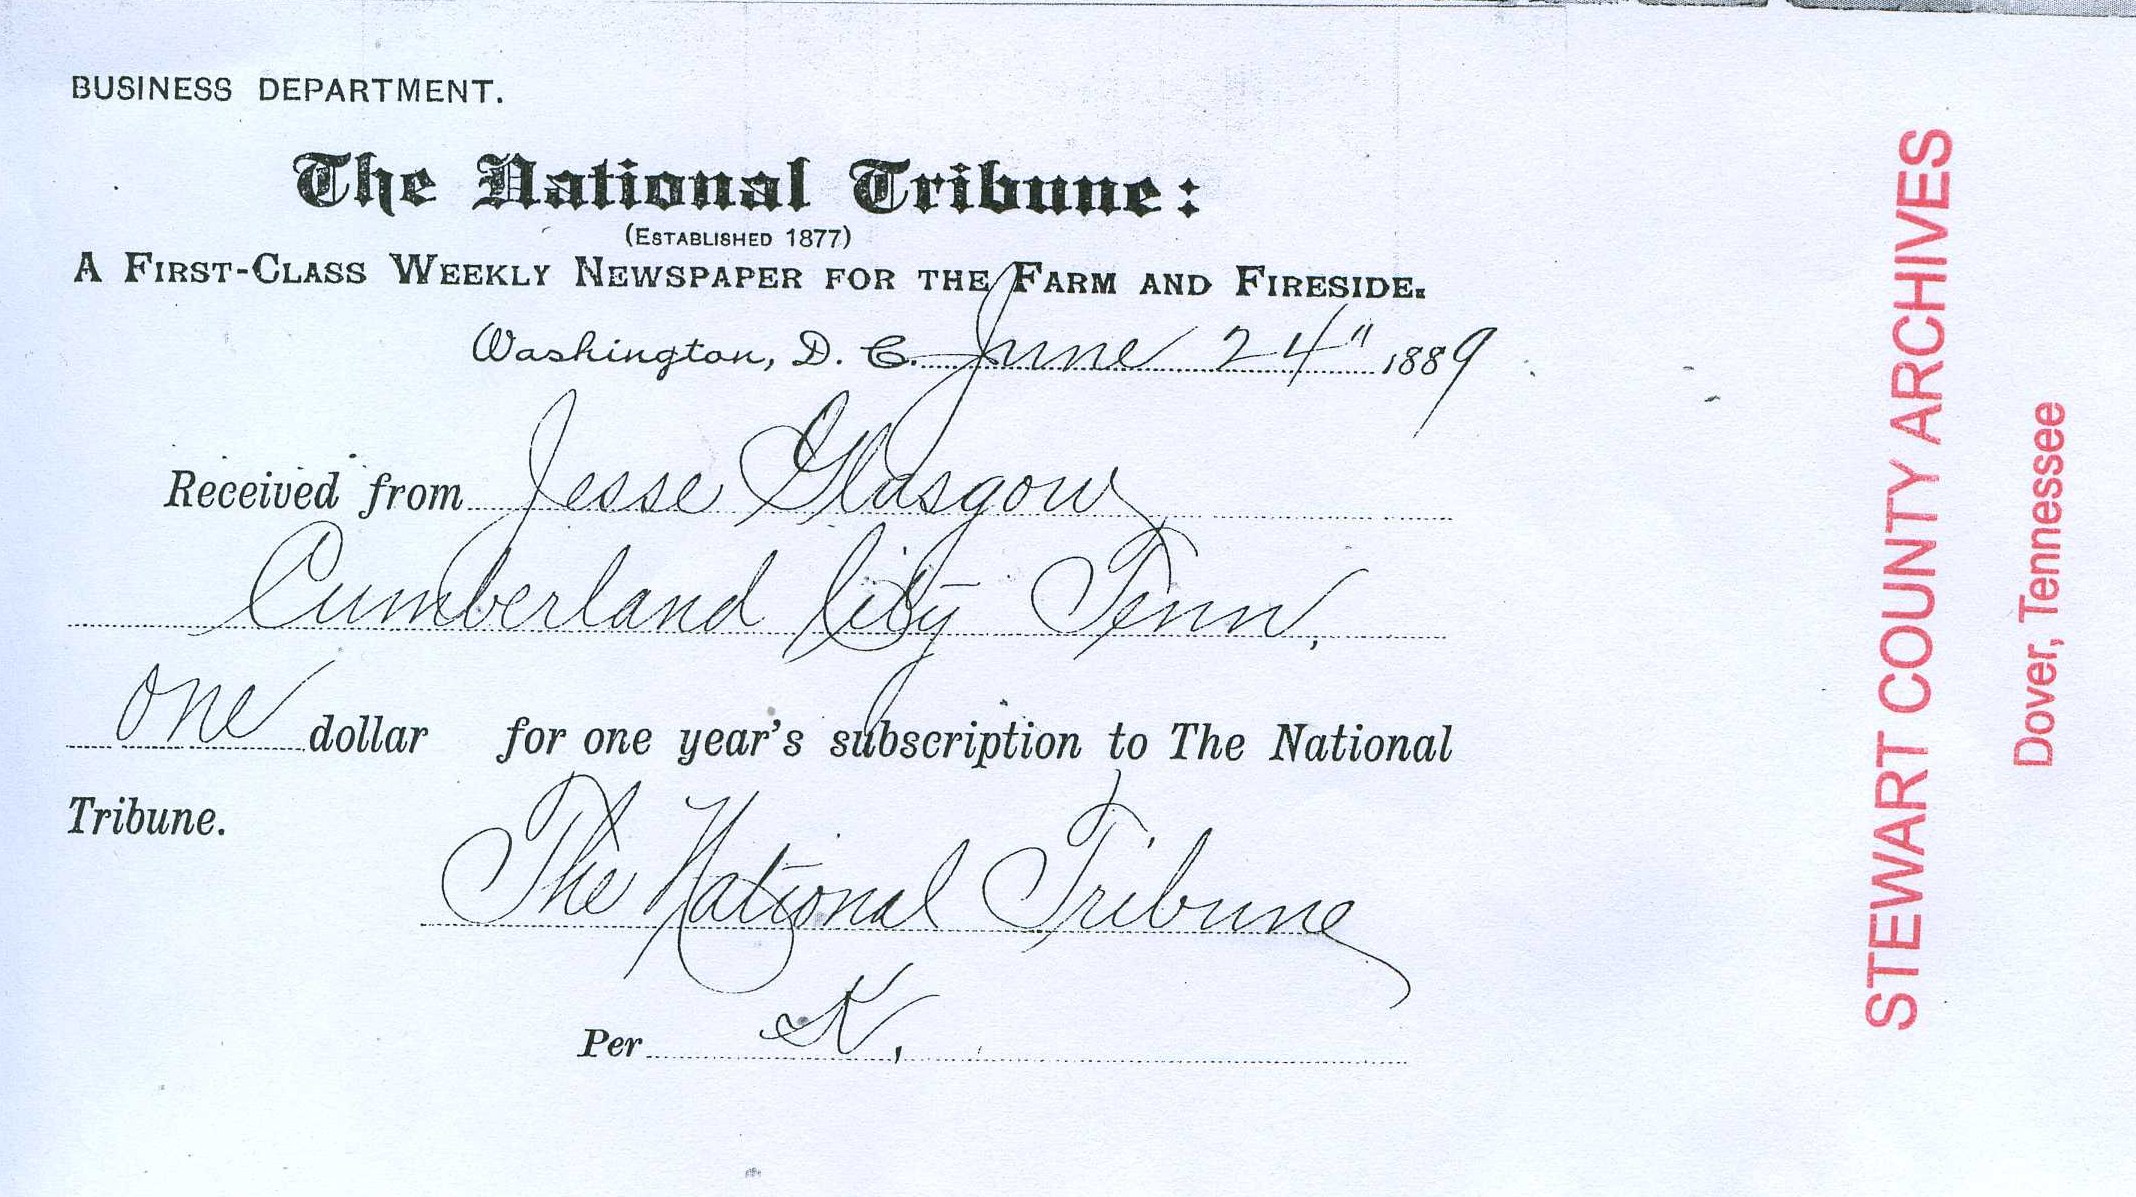 BUSINESS DEPARTMENT.
The National Tribune:
(ESTABLISHED 1877)
A FIRST-CLASS WEEKLY NEWSPAPER FOR THE FARM AND FIRESIDE.
Washington, D. C. June 24" 1889
Received from Jesse Glasgow
Cumberland City Tenn.
one dollar for one year's subscription to The National
Tribune.
The National Tribune
Per K.
STEWART COUNTY ARCHIVES
Dover, Tennessee